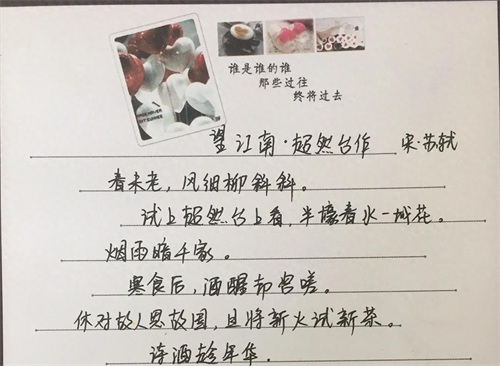 谁是谁的谁
那些过往
终将过去
望江南·超然台作 宋·苏轼
春未老，风细柳斜斜。
试上超然台上看，半壕春水一城花。
烟雨暗千家。
寒食后，酒醒却咨嗟。
休对故人思故国，且将新火试新茶。
诗酒趁年华.